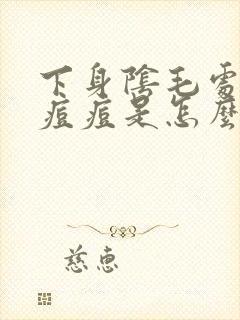 下身陰毛處
痘痘是怎麼
慈惠